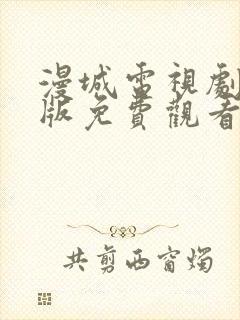 漫城電視劇
版免費觀看
共剪西窗燭